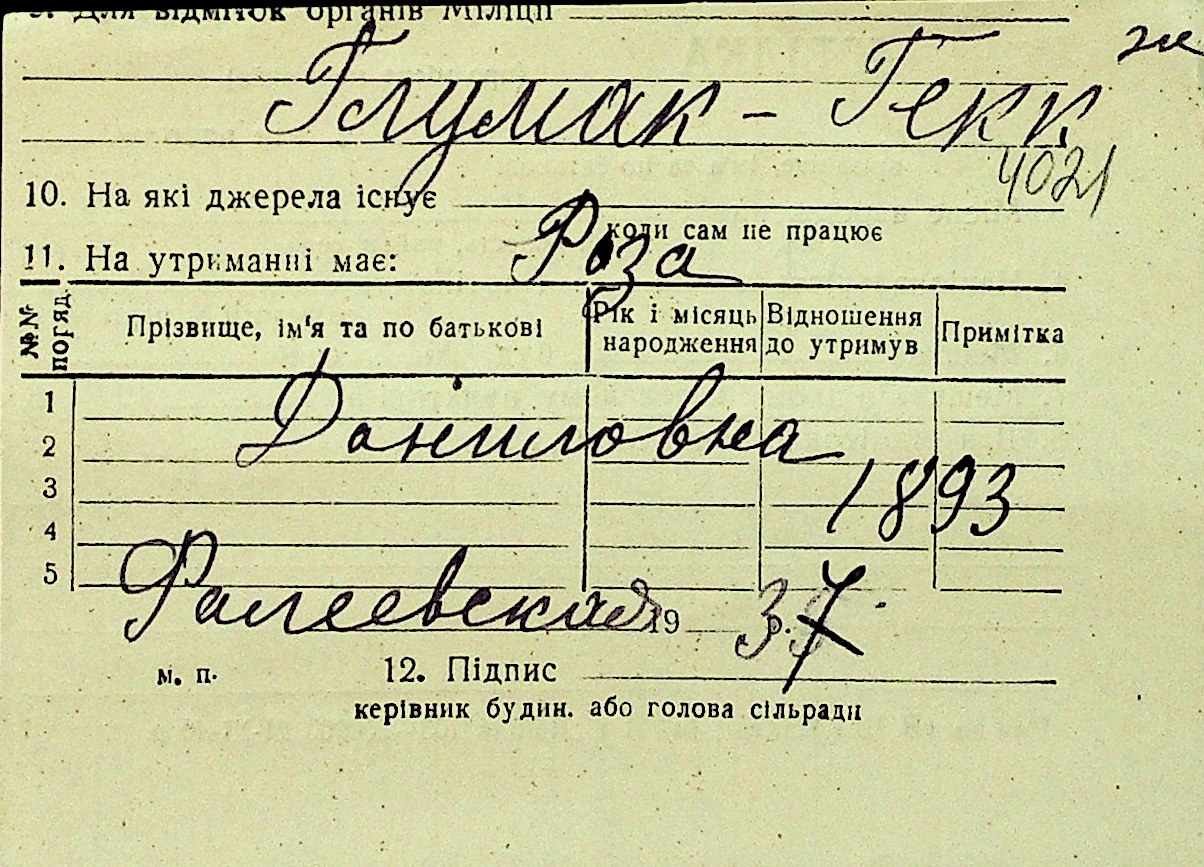 9. Для відміток органів Міліції
Глумак - Гекк
4021
10. На які джерела існує
коли сам не працює
11. На утриманні має: Роза
№№ поряд.
Прізвище, ім'я та по батькові
Рік і місяць народження
Відношення до утримув
Примітка
1
Даниловна
2
1893
3
4
5
Фалеевская 19 37
м. п.
12. Підпис
керівник будин. або голова сільради